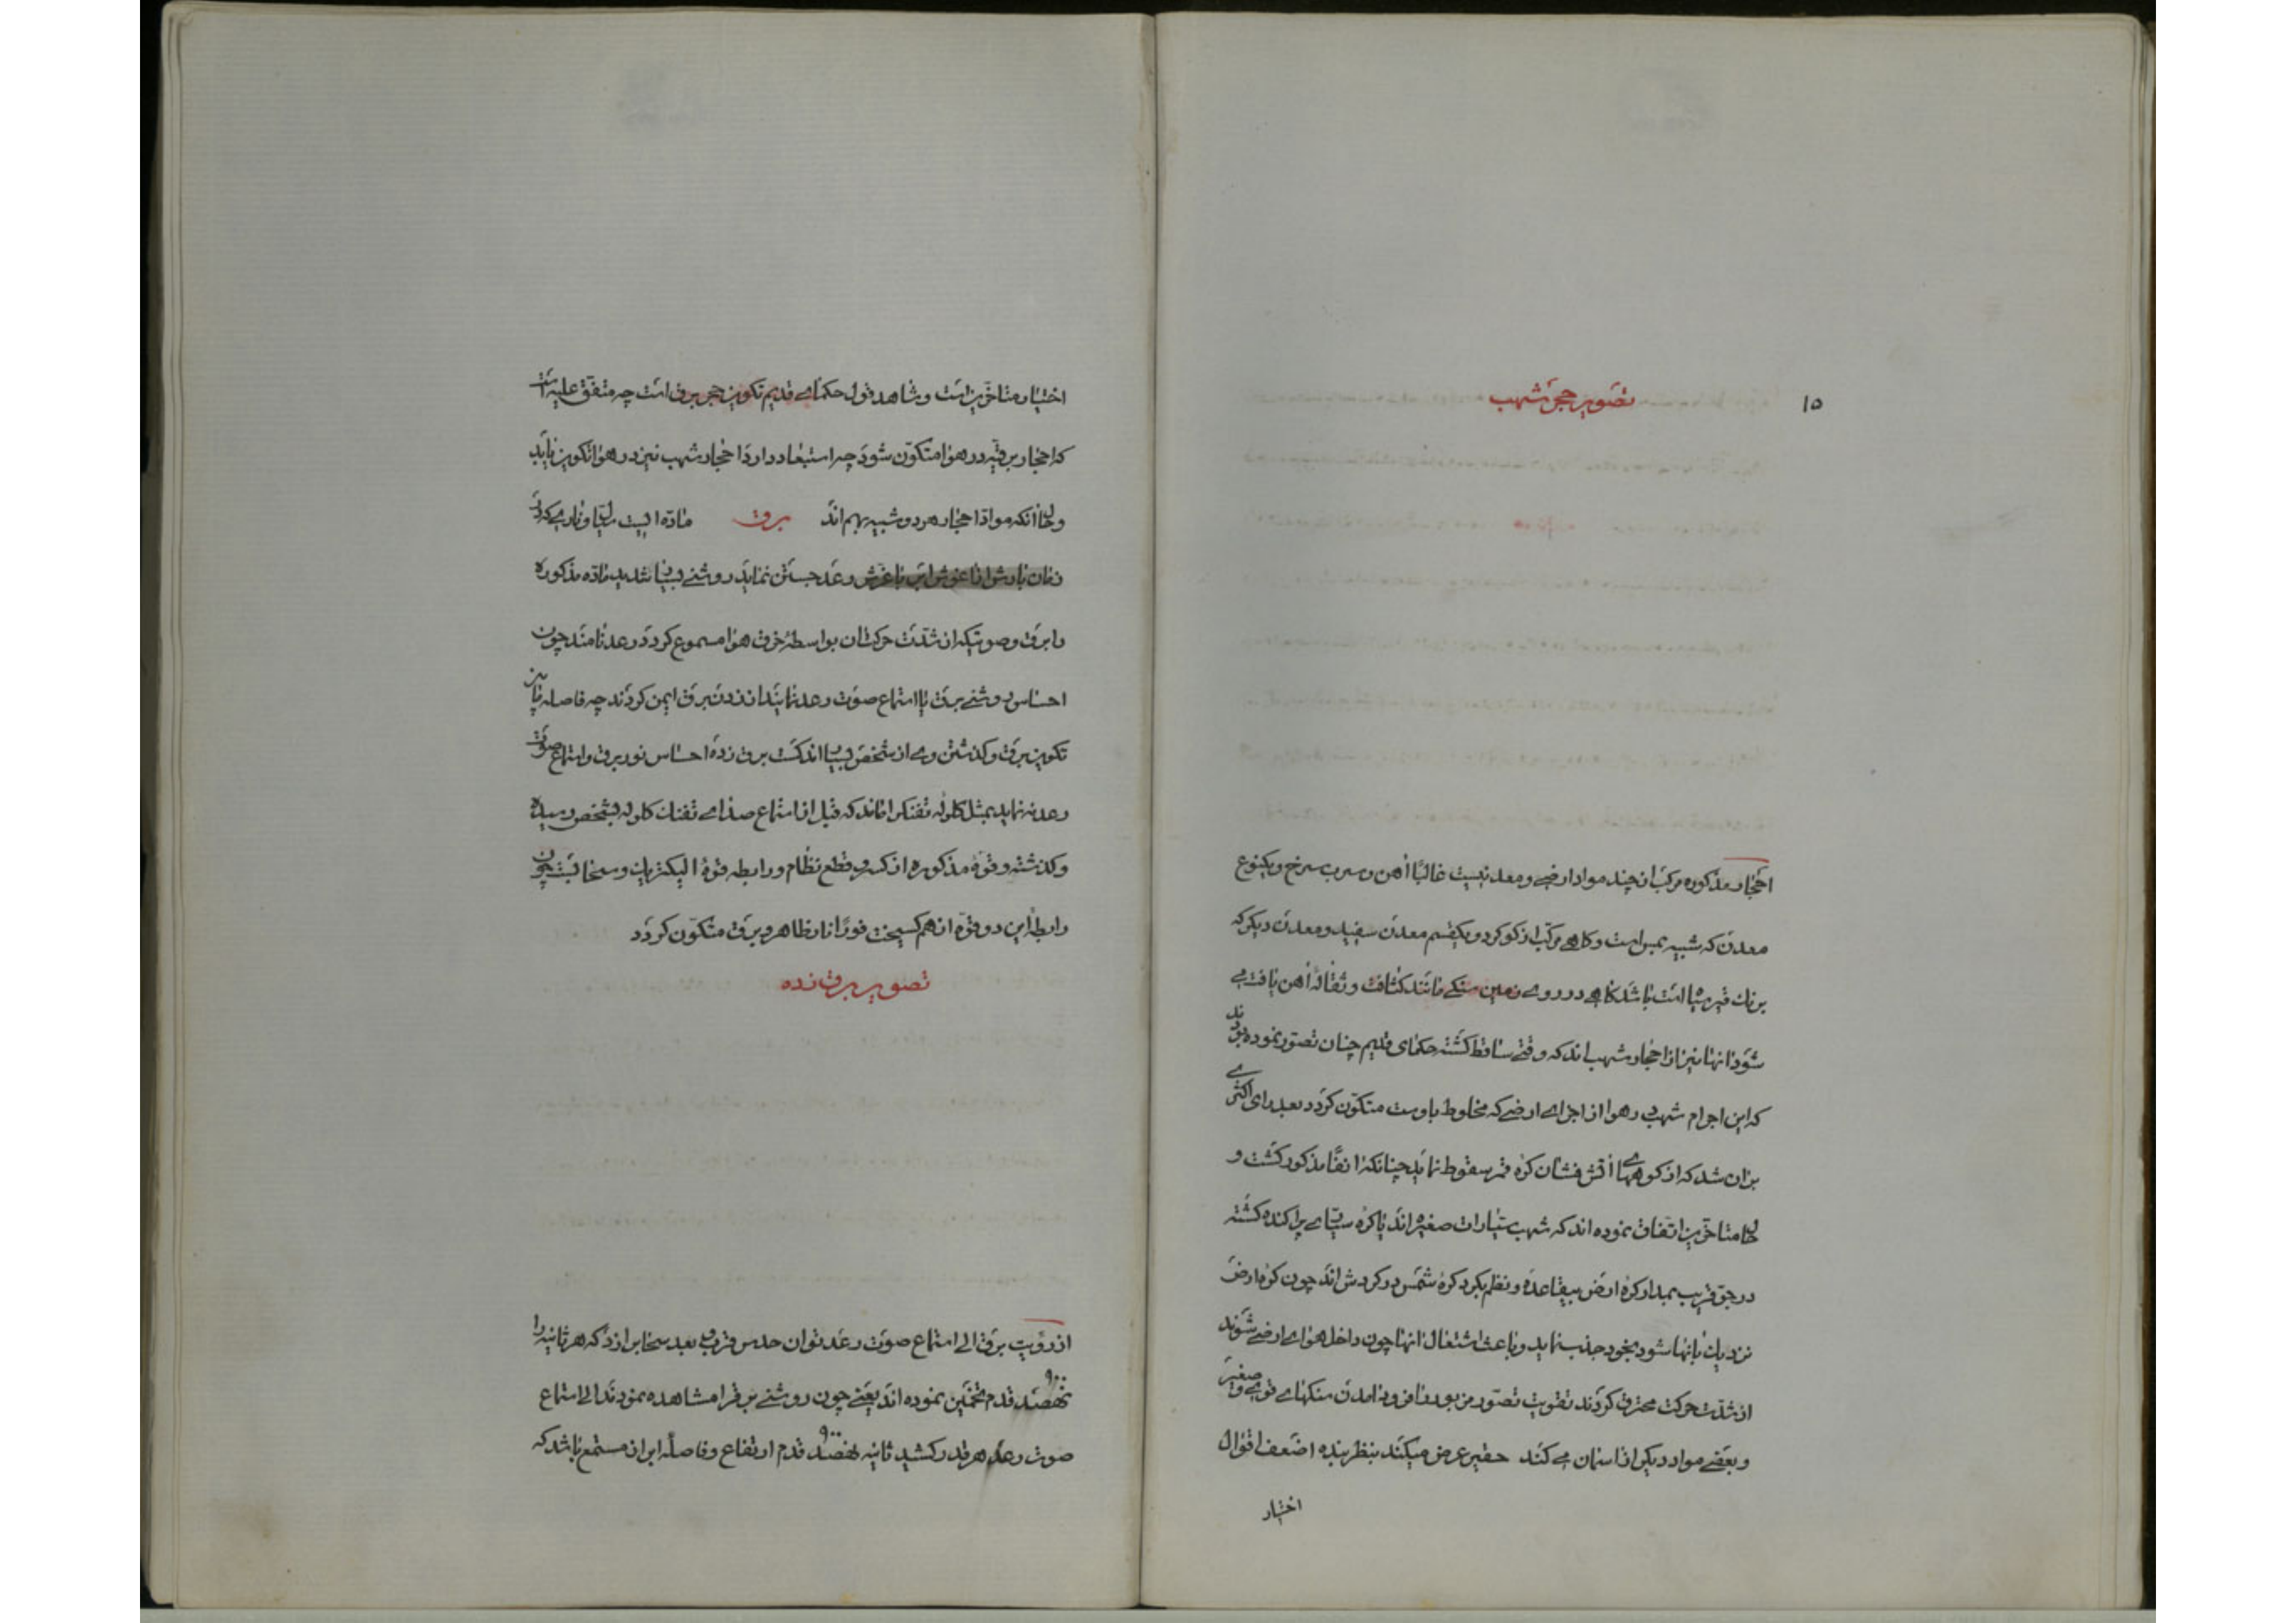 ۱۵
تصویر حجر شهب
احجار مذکوره مرکب از چند مواد ارضی و معدنیست غالبًا آهن و سرب سرخ و یکنوع
معدن که شبیه بمس است و کاهی مرکب از کوکرد و یکقسم معدن سفید و معدن دیکر که
برنك قیر سیاه است باشد کاهی در روی زمین سنکی مانند کثافت و ثقالة آهن یافت می
شود انها نیز از احجار شهب اند که وقتی ساقط کشته حکمای قدیم چنان تصور نموده بودند
که این اجرام شهب در هوا از اجزای ارضی که مخلوط باوست متکون کردد بعد رای اکثری
بران شد که از کوههای آتش فشان کرهٔ قمر سقوط نماید چنانکه انفًا مذکور کشت و
حال متاخرین اتفاق نموده اند که شهب سیارات صغیره اند یا کرهٔ سیاری پراکنده کشته
در جو قریب بمدار کرهٔ ارض بیقاعده و نظم بکرد کرهٔ شمس در کردش اند چون کرهٔ ارض
نزدیك بانها شود بخود جذب نماید و باعث اشتعال انها چون داخل هوای ارضی شوند
از شدت حرکت محترق کردند تقویت تصور مزبور را فرود امدن سنکهای قوی و صغیر
و بعضی مواد دیکر از اسمان می کند حقیر عرض میکند بنظر بنده اضعف اقوال
اختیار
اختیار متاخرین است و شاهد قول حکمای قدیم تکوین حجر برق است چه متفق علیه است
که احجار برقیه در هوا متکون شود چه استبعاد دارد احجار شهب نیز در هوا تکوین یابد
و حال انکه مواد احجار هر دو شبیه بهم اند برق ماده ایست سیال و ناری که در
زمان بارش از اغوش ابر با غرش رعد جستن نماید روشنی بسیار شدید ماده مذکوره
را برق و صوتیکه از شدت حرکت ان بواسطهٔ خرق هوا مسموع کردد رعد نامند چون
احساس روشنی برق یا استماع صوت رعد نمایند از زدن برق ایمن کردند چه فاصله مابین
تکوین برق و کذشتن وی از شخص بسیار اندکست برق زده احساس نور برق و استماع صوت
رعد نه نماید بمثل کلوله تفنك را ماند که قبل از استماع صدای تفنك کلوله بشخص رسیده
و کذشته و قوهٔ مذکوره از کسر و قطع نظام و رابطه قوهٔ الیکتریك و سحابست چون
رابطهٔ این دو قوه از هم کسیخت فورًا نار ظاهر و برق متکون کردد
تصویر برق زده
از رؤیت برق الی استماع صوت رعد توان حدس قرب و بعد سحاب را زد که هر ثانیه را
۹۰۰
نهصد قدم تخمین نموده اند یعنی چون روشنی برق را مشاهده نمودند الی استماع
۹۰۰
صوت رعد هر قدر کشید ثانیه نهصد قدم ارتفاع و فاصلهٔ ابر از مستمع باشد که